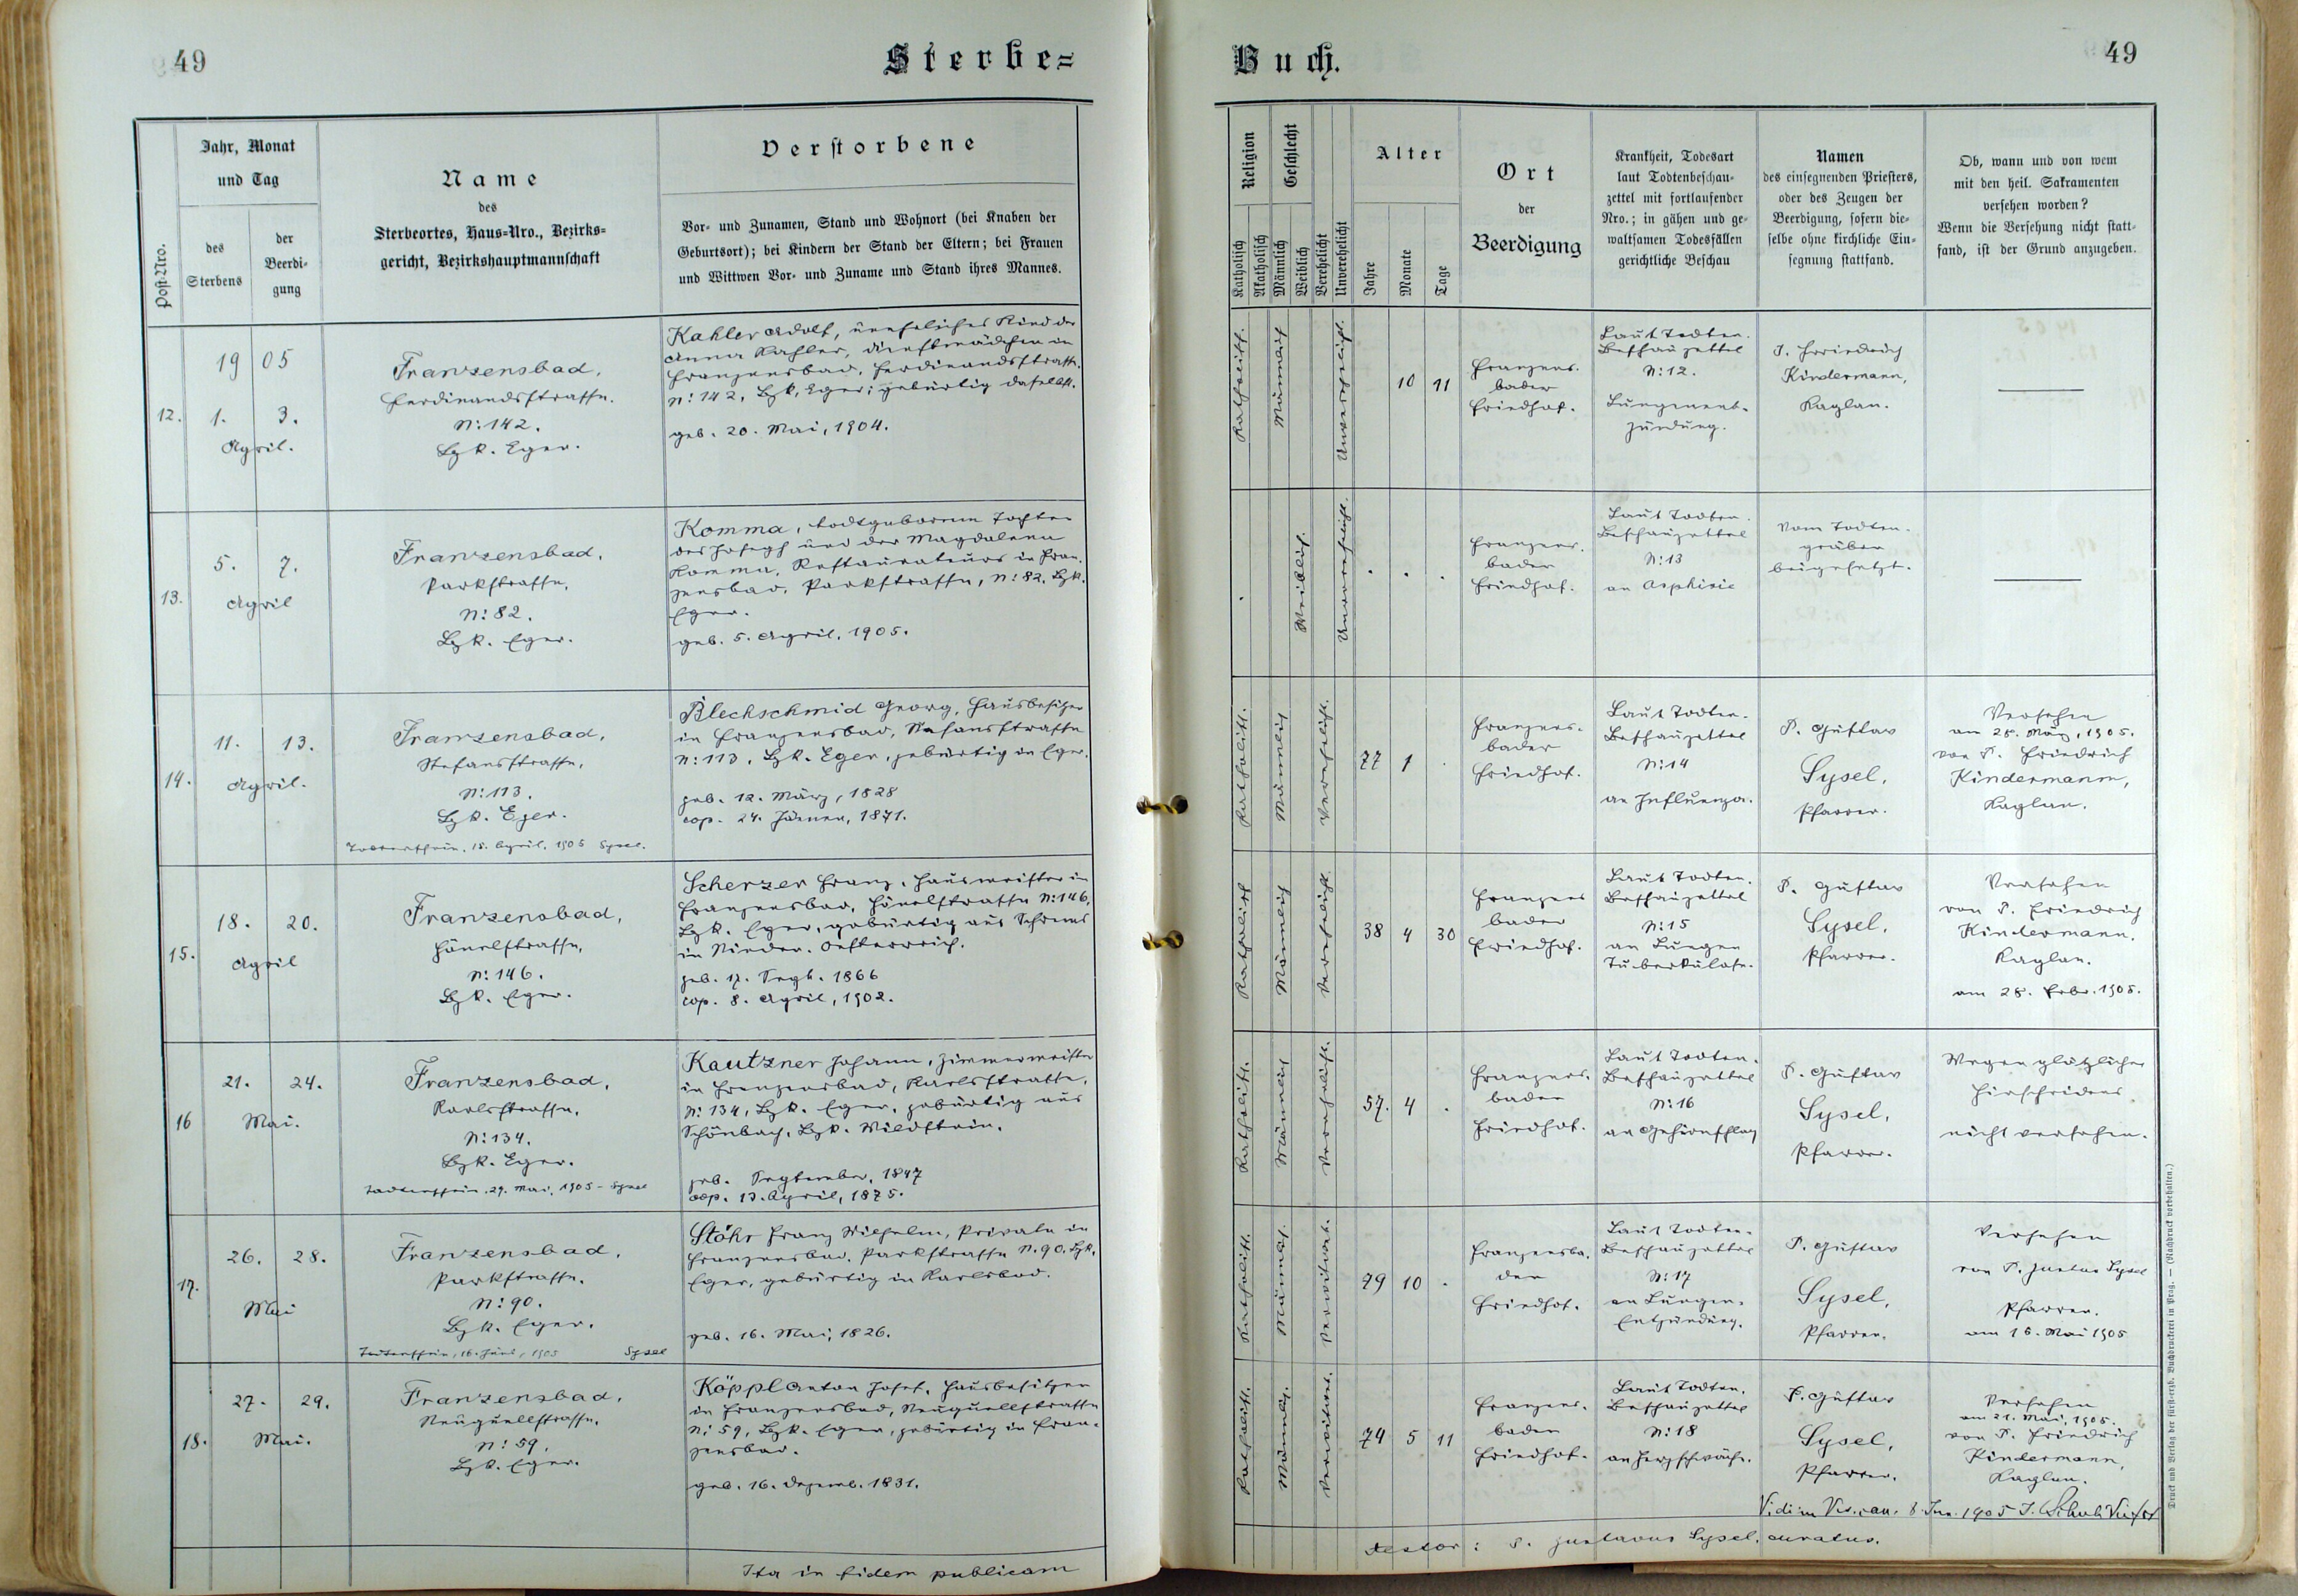 49
Sterbe=
Jahr, Monat
und Tag
Post-Nro.
des
Sterbens
der
Beerdi-
gung
Name
des
Sterbeortes, Haus-Nro., Bezirks-
gericht, Bezirkshauptmannschaft
Verstorbene
Vor- und Zunamen, Stand und Wohnort (bei Knaben der
Geburtsort); bei Kindern der Stand der Eltern; bei Frauen
und Wittwen Vor- und Zuname und Stand ihres Mannes.
12.
19 05
1. 3.
April.
Franzensbad,
Ferdinandstrasse.
N: 142.
Bzk. Eger.
Kahler Adolf, uneheliches Kind der
Anna Kahler, Dienstmädchen in
Franzensbad, Ferdinandsstrasse.
N: 142, Bzk. Eger; gebürtig daselbst.
geb. 20. Mai, 1904.
13.
5. 7.
April
Franzensbad,
Parkstrasse,
N: 82.
Bzk. Eger.
Komma, todtgeborene Tochter
des Joseph und der Magdalena
Komma, Restaurateurs in Fran-
zensbad, Parkstrasse, N: 82, Bzk.
Eger.
geb. 5. April, 1905.
14.
11. 13.
April.
Franzensbad,
Stefansstrasse,
N: 113.
Bzk. Eger.
Todtenschein. 15. April. 1905 Sysel.
Blechschmid Georg, Hausbesitzer
in Franzensbad, Stefansstrasse
N: 113, Bzk. Eger, gebürtig in Eger.
geb. 12. März, 1828
cop. 24. Jänner, 1871.
15.
18. 20.
April
Franzensbad,
N: 146.
Bzk. Eger.
Scherzer Franz, Hausmeister in
Franzensbad, N: 146,
Bzk. Eger, gebürtig aus Schrems
in Nieder-Oesterreich.
geb. 17. Sept. 1866
cop. 8. April, 1902.
16
21. 24.
Mai.
Franzensbad,
Karlsstrasse,
N: 134.
Bzk. Eger.
Todtenschein. 29. Mai, 1905 - Sysel
Kautzner Johann, Zimmermeister
in Franzensbad, Karlsstrasse,
N: 134, Bzk. Eger, gebürtig aus
Schönbach, Bzk. Wildstein.
geb. September, 1847
cop. 13. April, 1875.
17.
26. 28.
Mai
Franzensbad,
Parkstrasse.
N: 90.
Bzk. Eger.
Todtenschein, 16. Juni, 1905 Sysel
Stöhr Franz Wilhelm, Private in
Franzensbad, Parkstrasse N. 90. Bzk.
Eger, gebürtig in Karlsbad.
geb. 16. Mai, 1826.
18.
27. 29.
Mai.
Franzensbad,
Neuquellstrasse,
N: 59.
Bzk. Eger.
Köppl Anton Josef, Hausbesitzer
in Franzensbad, Neuquellstrasse
N: 59, Bzk. Eger, gebürtig in Fran-
zensbad.
geb. 16. Dezemb. 1831.
Ita in fidem publicam
Buch.
49
Religion
Katholisch
Akatholisch
Geschlecht
Männlich
Weiblich
Verehelicht
Unverehelicht
Alter
Jahre
Monate
Tage
Ort
der
Beerdigung
Krankheit, Todesart
laut Todtenbeschau-
zettel mit fortlaufender
Nro.; in gähen und ge-
waltsamen Todesfällen
gerichtliche Beschau
Namen
des einsegnenden Priesters,
oder des Zeugen der
Beerdigung, sofern die-
selbe ohne kirchliche Ein-
segnung stattfand.
Ob, wann und von wem
mit den heil. Sakramenten
versehen worden?
Wenn die Versehung nicht statt-
fand, ist der Grund anzugeben.
Katholisch.
Männlich
Unverehelicht.
10 11
Franzens-
bader
Friedhof.
Laut Todten-
Beschauzettel
N: 12.
Lungenent-
zündung.
P. Friedrich
Kindermann,
Kaplan.
Weiblich.
Unverehelicht.
Franzens-
bader
Friedhof.
Laut Todten-
Beschauzettel
N: 13
an Asphixie
Vom Todten-
gräber
beigesetzt.
Katholisch.
Männlich
Verehelicht.
77 1
Franzens-
bader
Friedhof.
Laut Todten-
Beschauzettel
N: 14
an Influenza.
P. Gustav
Sysel,
Pfarrer.
Versehen
am 28. März, 1905.
von P. Friedrich
Kindermann,
Kaplan.
Katholisch
Männlich
Verehelicht.
38 4 30
Franzens
bader
Friedhof.
Laut Todten-
Beschauzettel
N: 15
an Lungen
Tuberkulose.
P. Gustav
Sysel,
Pfarrer.
Versehen
von P. Friedrich
Kindermann,
Kaplan.
am 28. Febr. 1905.
Katholisch.
Männlich
Verehelicht.
57. 4
Franzens-
bader
Friedhof.
Laut Todten-
Beschauzettel
N: 16
an Gehirnschlag
P. Gustav
Sysel,
Pfarrer.
Wegen plötzlichen
Hinscheidens
nicht versehen.
Katholisch.
Männlich.
Verwitwet.
79 10
Franzensba-
der
Friedhof.
Laut Todten-
Beschauzettel
N: 17
an Lungen-
Entzündung.
P. Gustav
Sysel,
Pfarrer.
Versehen
von P. Gustav Sysel
Pfarrer.
am 16. Mai 1905
Katholisch.
Männlich.
Verwitwet.
74 5 11
Franzens-
bader
Friedhof.
Laut Todten-
Beschauzettel
N: 18
an Herzschwäche.
P. Gustav
Sysel,
Pfarrer.
Versehen
am 21. Mai, 1905.
von P. Friedrich
Kindermann,
Kaplan.
Vidi in 8. Jun. 1905
testor: P. Gustavus Sysel, curatus.
Druck und Verlag der fürsterzb. Buchdruckerei in Prag. — (Nachdruck vorbehalten.)